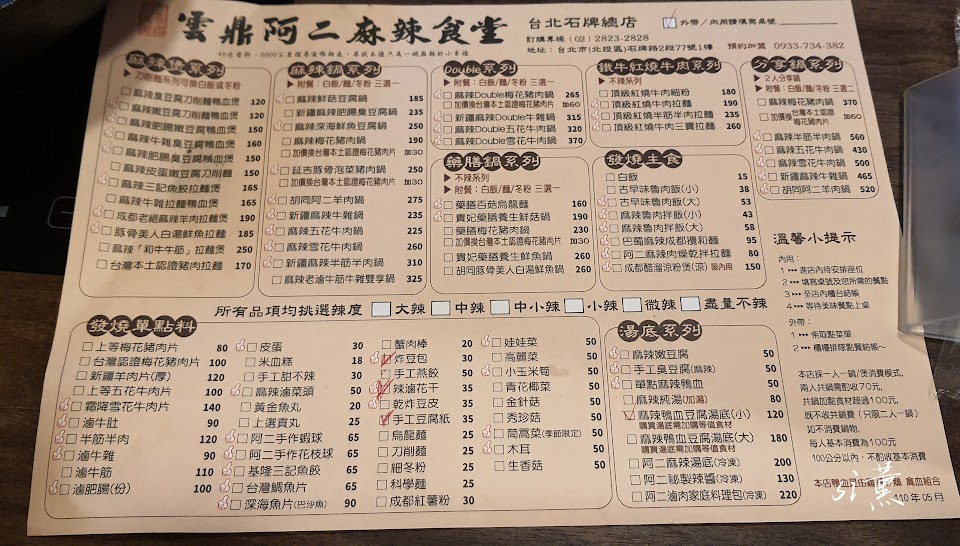 雲鼎阿二麻辣食堂
台北石牌總店
外帶/內用請填寫桌號
訂購專線 (02) 2823-2828
地址:台北市(北投區)石牌路2段77號1樓
預約加盟 0933-734-382
麻辣煲系列
▶刀削麵系列可換白飯或冬粉
麻辣臭豆腐刀削麵鴨血煲 120
麻辣嫩豆腐刀削麵鴨血煲 120
麻辣肥腸嫩豆腐鴨血煲 150
麻辣牛雜臭豆腐鴨血煲 160
麻辣肥腸臭豆腐鴨血煲 150
麻辣皮蛋嫩豆腐刀削麵 150
麻辣三記魚餃拉麵煲 165
成都老媽麻辣羊肉拉麵煲 190
豚骨美人白湯鮮魚拉麵 165
麻辣「和牛牛筋」拉麵煲 250
台灣本土認證豬肉拉麵 170
麻辣鍋系列
▶附餐:白飯/麵/冬粉 三選一
麻辣鮮菇豆腐鍋 185
新疆麻辣肥腸臭豆腐鍋 235
麻辣深海鮮魚豆腐鍋 250
麻辣梅花豬肉鍋 190
加價換台灣本土認證梅花豬肉片 加30
延吉豚骨泡菜豬肉鍋 250
加價換台灣本土認證梅花豬肉片 加30
胡同阿二羊肉鍋 275
新疆麻辣牛雜鍋 235
麻辣五花牛肉鍋 225
麻辣雪花牛肉鍋 240
新疆麻辣羊肚半筋半肉鍋 310
麻辣老滷牛筋牛雜雙享鍋 325
Double系列
▶附餐:白飯/麵/冬粉 三選一
麻辣Double梅花豬肉鍋 265
加價換台灣本土認證梅花豬肉片 加60
新疆麻辣Double牛雜鍋 315
麻辣Double五花牛肉鍋 320
麻辣Double雪花牛肉鍋 370
藥膳鍋系列
▶不辣系列
▶附餐:白飯/麵/冬粉 三選一
藥膳百菇烏龍麵 160
貴妃藥膳養生鮮菇鍋 190
藥膳梅花豬肉鍋 230
加價換台灣本土認證梅花豬肉片 加30
貴妃藥膳養生鮮魚鍋 260
胡同豚骨美人白湯鮮魚鍋 260
鐵牛紅燒牛肉系列
▶不辣系列
頂級紅燒牛肉細粉 180
頂級紅燒牛肉拉麵 190
頂級紅燒半筋半肉拉麵 235
頂級紅燒牛肉三寶拉麵 260
發燒主食
白飯 15
古早味魯肉飯(小) 38
古早味魯肉飯(大) 53
麻辣魯肉拌飯(小) 43
麻辣魯肉拌飯(大) 58
巴蜀麻辣成都擔和麵 95
阿二麻辣魯肉燥乾拌麵 80
成都醋溜涼粉煲(涼) 限內用 150
分享鍋系列
▶2人分享鍋
▶附餐:白飯/麵/冬粉 三選一
麻辣梅花豬肉鍋 370
加價換台灣本土認證梅花豬肉片 加60
麻辣半筋半肉鍋 560
麻辣五花牛肉鍋 430
麻辣雪花牛肉鍋 500
新疆麻辣牛雜鍋 465
胡同阿二羊肉鍋 520
所有品項均挑選辣度 大辣 中辣 中小辣 小辣 微辣 盡量不辣
發燒單點料
上等梅花豬肉片 80
台灣認證梅花豬肉片 100
新疆羊肉片(厚) 120
上等五花牛肉片 100
霜降雪花牛肉片 140
滷牛肚 90
半筋半肉 120
滷牛雜 90
滷牛筋 110
滷肥腸(份) 100
皮蛋 30
米血糕 18
手工甜不辣 30
麻辣滷菜頭 50
黃金魚丸 20
上選貢丸 25
阿二手作蝦球 65
阿二手作花枝球 65
基隆三記魚餃 65
台灣鯛魚片 65
深海魚片(巴沙魚) 95
蟹肉棒 20
炸豆包 30
手工燕餃 50
辣滷花干 35
乾炸豆皮 35
手工豆腐紙 35
烏龍麵 25
刀削麵 25
細冬粉 25
科學麵 25
成都紅薯粉 30
娃娃菜 50
高麗菜 50
小玉米筍 50
青花椰菜 50
金針菇 50
秀珍菇 50
茼蒿菜(季節限定) 50
木耳 50
生香菇 50
湯底系列
麻辣嫩豆腐 50
手工臭豆腐(麻辣) 50
單點麻辣鴨血 50
麻辣純湯(加湯) 80
麻辣鴨血豆腐湯底(小) 120
購買湯底需加購等值食材
麻辣鴨血豆腐湯底(大) 180
購買湯底需加購等值食材
阿二麻辣湯底(冷凍) 200
阿二祕製辣醬(冷凍) 130
阿二滷肉家庭料理包(冷凍) 220
溫馨小提示
內用:
1 ▸▸▸ 進店內待安排座位
2 ▸▸▸ 填寫桌號及您所需的餐點
3 ▸▸▸ 至店內櫃台結帳
4 ▸▸▸ 等待美味餐點上桌
外帶:
1 ▸▸▸ 索取點菜單
2 ▸▸▸ 櫃檯排隊點餐結帳~
本店採一人一鍋/煲消費模式,
兩人共鍋需酌收70元,
共鍋加點食材超過100元,
既不收共鍋費(只限二人一鍋)
如不消費鍋物,
每人基本消費為100元
100公分以內,不酌收基本消費
110年05月
si薰